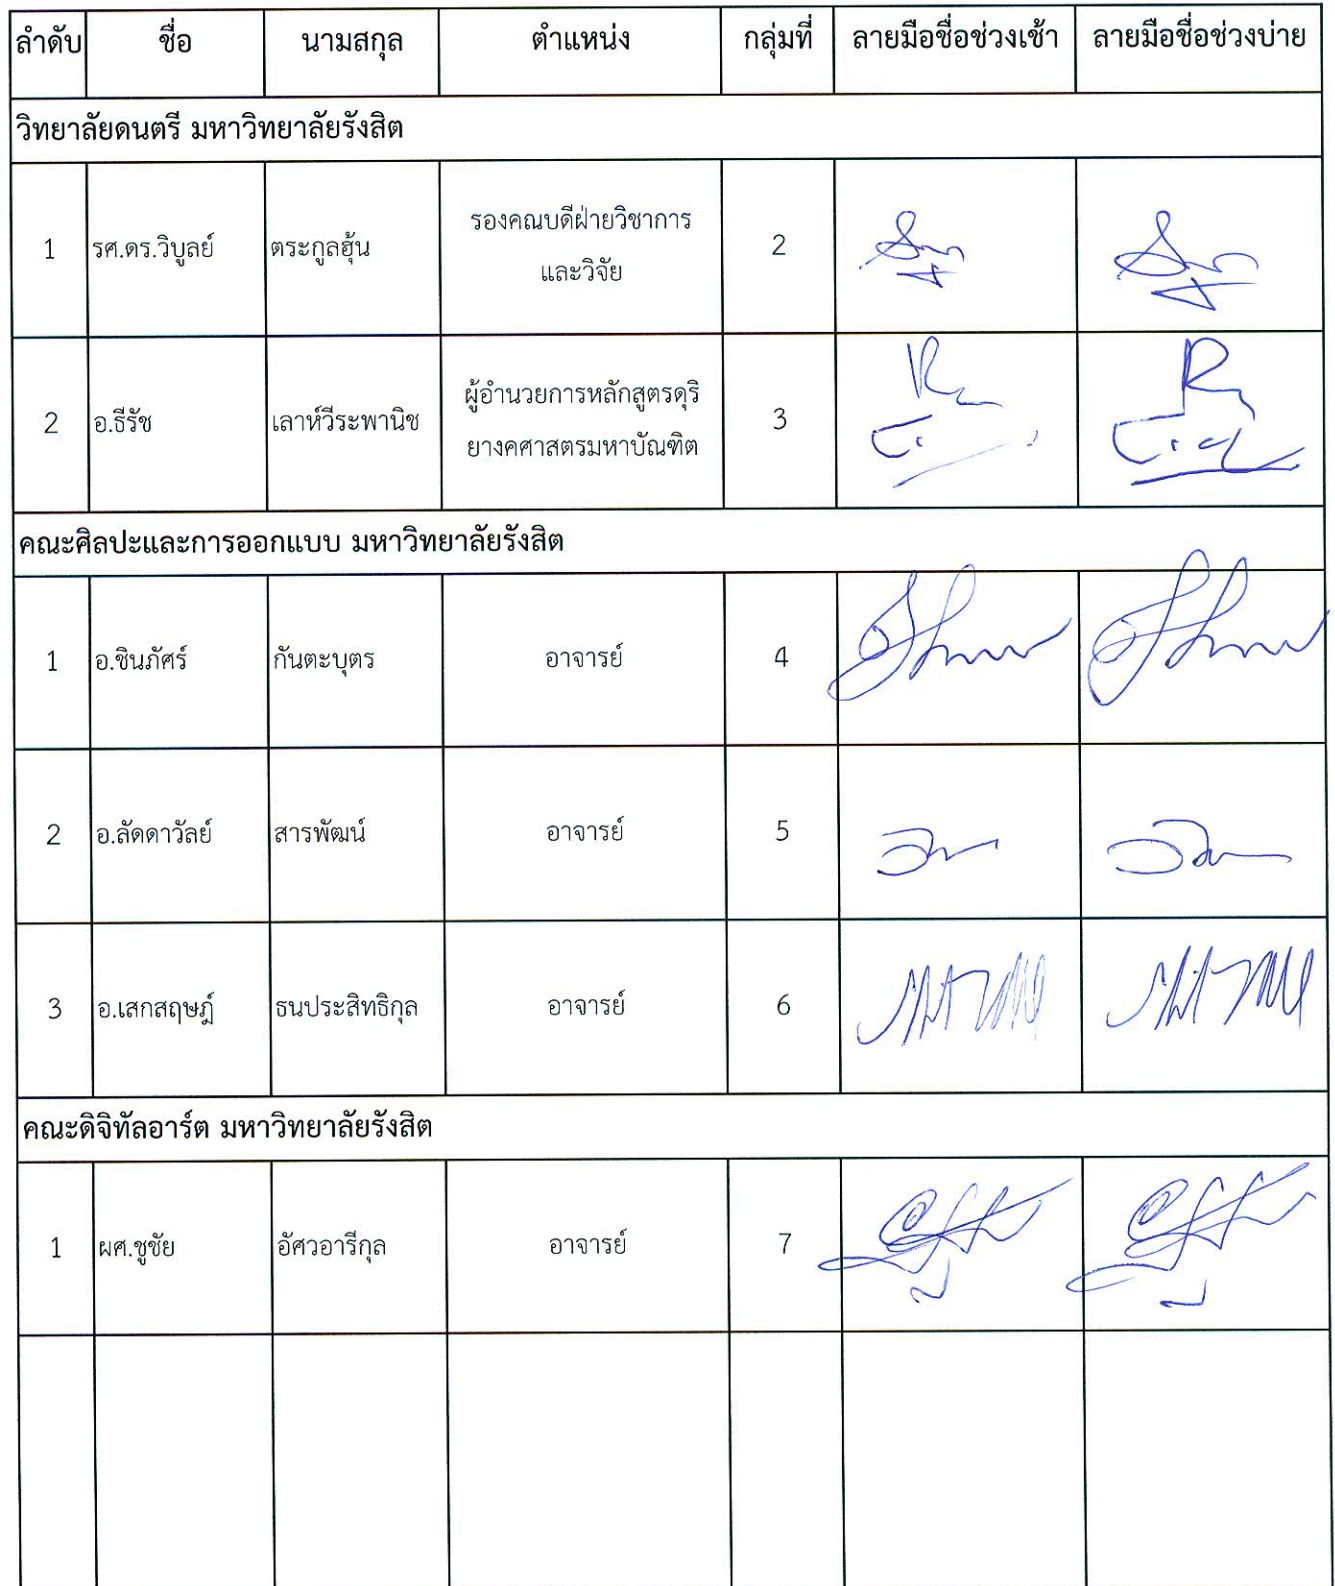 ลำดับ ชื่อ นามสกุล ตำแหน่ง กลุ่มที่ ลายมือชื่อช่วงเช้า ลายมือชื่อช่วงบ่าย
วิทยาลัยดนตรี มหาวิทยาลัยรังสิต
1 รศ.ดร.วิบูลย์ ตระกูลฮุ้น รองคณบดีฝ่ายวิชาการ 2
และวิจัย
2 อ.ธีรัช เลาห์วีระพานิช ผู้อำนวยการหลักสูตรดุริ 3
ยางคศาสตรมหาบัณฑิต
คณะศิลปะและการออกแบบ มหาวิทยาลัยรังสิต
1 อ.ชินภัศร์ กันตะบุตร อาจารย์ 4
2 อ.ลัดดาวัลย์ สารพัฒน์ อาจารย์ 5
3 อ.เสกสฤษฎ์ ธนประสิทธิกุล อาจารย์ 6
คณะดิจิทัลอาร์ต มหาวิทยาลัยรังสิต
1 ผศ.ชูชัย อัศวอารีกุล อาจารย์ 7